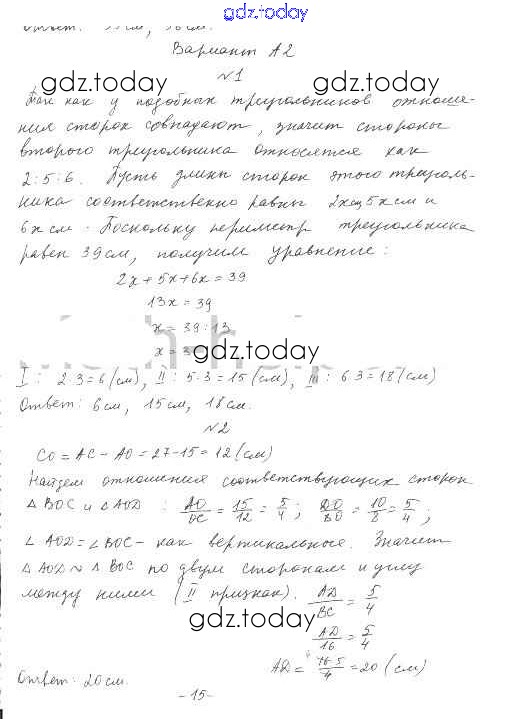 gdz.today
Вариант А2
№1
gdz.today gdz.today
Так как у подобных треугольников отноше-
ния сторон совпадают, значит стороны
второго треугольника относятся как
2:5:6. Пусть длины сторон этого треуголь-
ника соответственно равны 2х см 5х см и
6х см. Поскольку периметр треугольника
равен 39 см, получим уравнение:
2х + 5х + 6х = 39
13х = 39
х = 39 : 13
х = 3
gdz.today
I : 2·3=6 (см), II : 5·3=15 (см), III : 6·3=18 (см)
Ответ: 6 см, 15 см, 18 см.
№2
CO = AC - AO = 27-15 = 12 (см)
gdz.today gdz.today
Найдем отношения соответствующих сторон
△ BOC и △ AOD : AO/OC = 15/12 = 5/4 ; DO/BO = 10/8 = 5/4 ;
∠ AOD = ∠ BOC - как вертикальные. Значит
△ AOD ~ △ BOC по двум сторонам и углу
между ними (II признак). AD/BC = 5/4
gdz.today
AD/16 = 5/4
AD = 16·5/4 = 20 (см)
Ответ: 20 см.
- 15 -